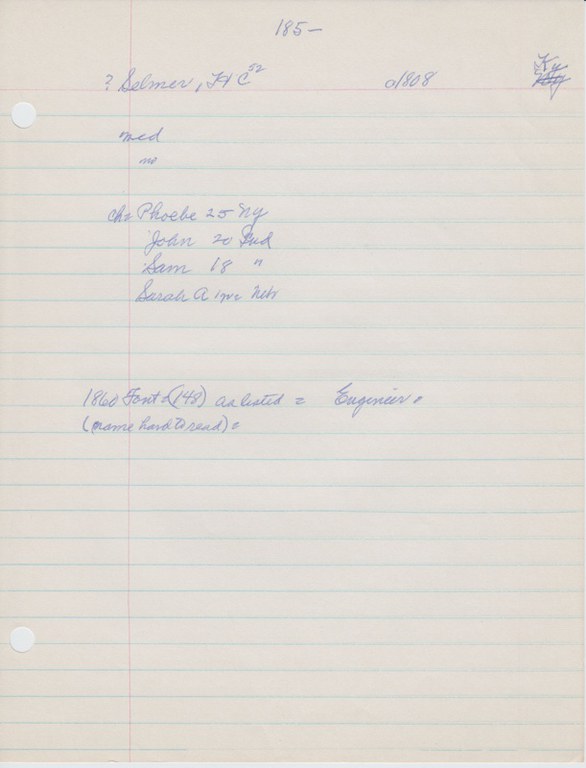 185-
? Selmer, H C 52 c/1808 Ky
med
no
ch= Phoebe 25 Ny
John 20 Ind
Sam 18 "
Sarah A 1 mo Neb
1860 Font = (148) as listed = Engineer =
(name hard to read) =